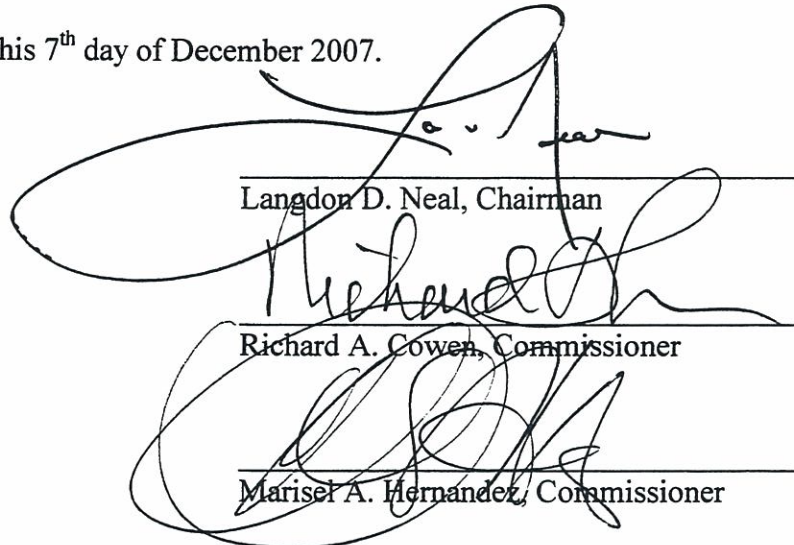 his 7th day of December 2007.
Langdon D. Neal, Chairman
Richard A. Cowen, Commissioner
Marisel A. Hernandez, Commissioner